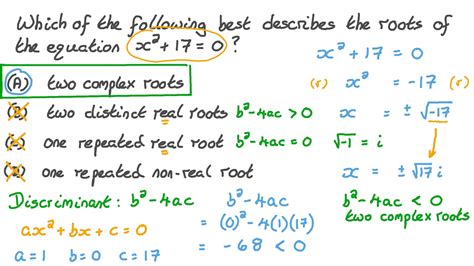 Which of the following best describes the roots of
the equation x² + 17 = 0 ?
(A) two complex roots
(B) two distinct real roots b²-4ac > 0
(C) one repeated real root b²-4ac = 0
(D) one repeated non-real root
Discriminant: b²-4ac
ax² + bx + c = 0
a = 1 b = 0 c = 17
b²-4ac
= (0)² - 4(1)(17)
= -68 < 0
x² + 17 = 0
(r) x² = -17 (r)
x = ± √-17
√-1 = i
x = ± √17 i
b²-4ac < 0
two complex roots